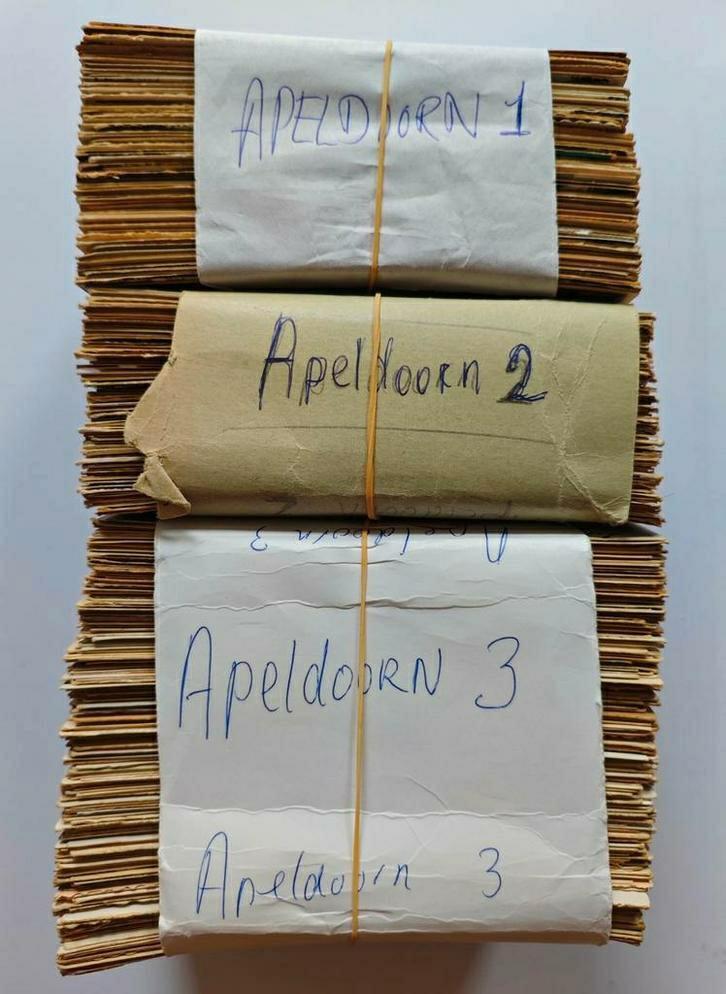 APELDOORN 1
Apeldoorn 2
Apeldoorn 3
ApeldooRN 3
Apeldoorn 3